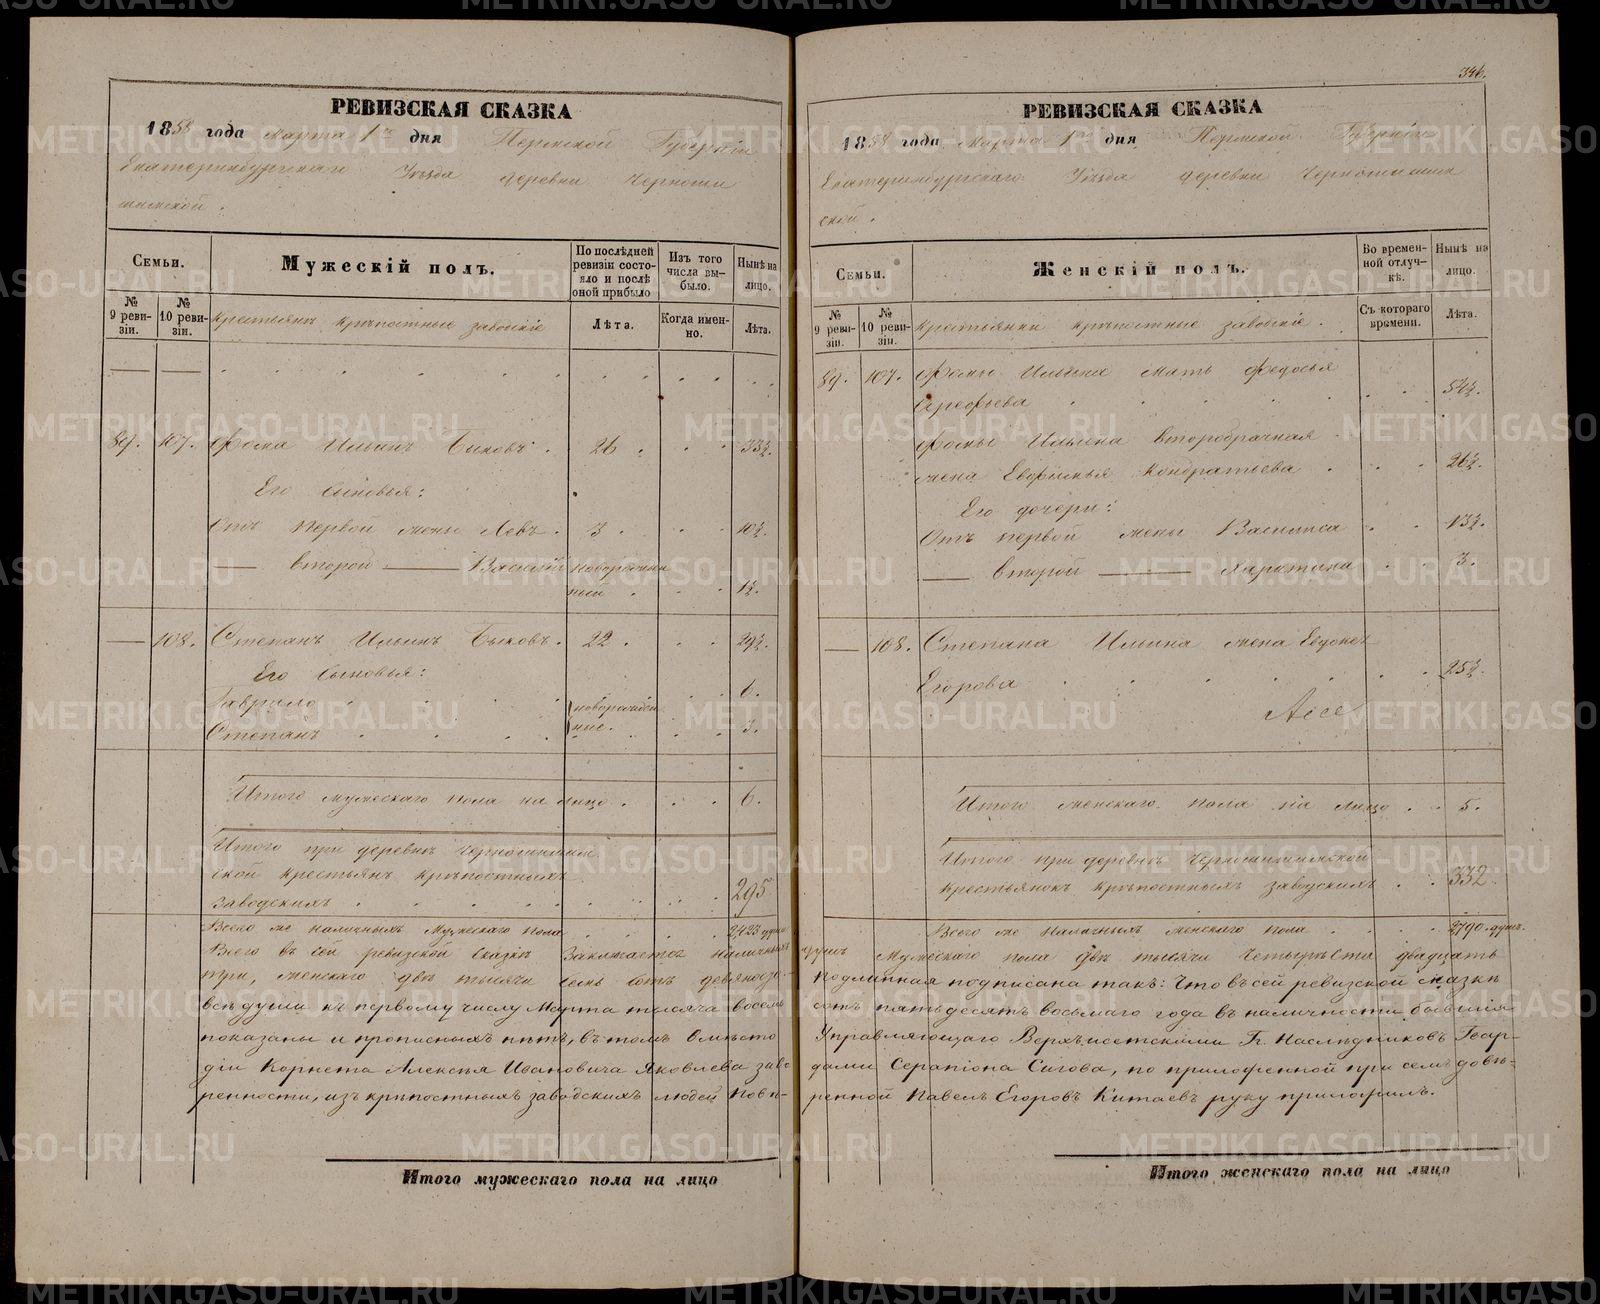 346.
РЕВИЗСКАЯ СКАЗКА
1858 года Марта 1го дня Пермской Губерніи
Екатеринбургскаго Уѣзда деревни Черноши
шимской.
Семьи.
Мужескій полъ.
По послѣдней ревизіи состояло и послѣ оной прибыло
Изъ того числа выбыло.
Нынѣ на лицо.
№ 9 ревизіи.
№ 10 ревизіи.
Крестьянъ крѣпостные заводскіе
Лѣта.
Когда именно.
Лѣта.
89. 107. Фома Ильинъ Быковъ. 26. 33½.
Его сыновья:
Отъ первой жены Левъ. 3. 10½.
— второй — Василій новорожден
ный 1½.
— 108. Степанъ Ильинъ Быковъ. 22. 29½.
Его сыновья:
Гаврило 6.
новорожден
ные.
Степанъ 3.
Итого мужескаго пола на лицо. 6.
Итого при деревнѣ Черношишим
ской крестьянъ крѣпостныхъ
заводскихъ 295
Всего же наличныхъ мужескаго пола 2423 душъ
Всего въ сей ревизской сказкѣ заключается наличныхъ
три, женскаго двѣ тысячи семь сотъ девяносто
всѣ души къ первому числу Марта тысяча восемь
показаны и прописныхъ нѣтъ, въ томъ вмѣсто
діи Корнета Алексѣя Ивановича Яковлева заво
ренности, изъ крѣпостныхъ заводскихъ людей повѣ-
Итого мужескаго пола на лицо
РЕВИЗСКАЯ СКАЗКА
1858 года Марта 1го дня Пермской Губерніи
Екатеринбургскаго Уѣзда деревни Черношишим
ской.
Семьи.
Женскій полъ.
Во временной отлучкѣ.
Нынѣ на лицо.
№ 9 ревизіи.
№ 10 ревизіи.
Крестьянки крѣпостные заводскіе.
Съ котораго времени.
Лѣта.
89. 107. Фомы Ильина мать Федосья
54½.
Фомы Ильина второбрачная
жена Евфимья Кондратьева 26½.
Его дочери:
Отъ первой жены Василиса 13½.
— второй — Харитина 3.
— 108. Степана Ильина жена Евдокея
Егорова 25½.
Итого женскаго пола на лицо 5.
Итого при деревнѣ Черношишимской
крестьянокъ крѣпостныхъ заводскихъ 332
Всего же наличныхъ женскаго пола 2790 душъ.
душъ мужескаго пола двѣ тысячи четыреста двадцать
Подлинная подписана такъ: Что въ сей ревизской сказкѣ
сотъ пятьдесятъ восьмаго года въ наличности бывшія
Управляющаго Верхъисетскими Гг. Наслѣдниковъ Гвар-
дами Серапіона Сигова, по приложенной при семъ довѣ-
ренной Павелъ Егоровъ Китаевъ руку приложилъ.
Итого женскаго пола на лицо
METRIKI.GASO-URAL.RU